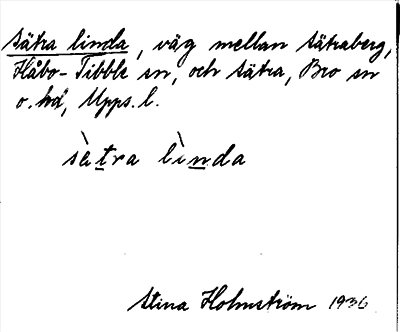 Sätra linda, väg mellan Sätraberg,
Håbo-Tibble sn, och Sätra, Bro sn
o. hd, Upps. l.
sàtra lìnda
Stina Holmström 1936